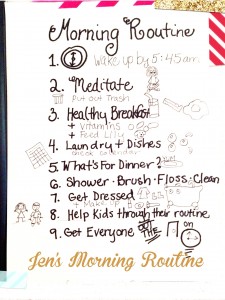 Morning Routine
1. Wake up by 5:45am
2. Meditate
Put out Trash
3. Healthy Breakfast
+ Vitamins
+ Feed Lily
4. Laundry + Dishes
Check Calendar
5. What's For Dinner?
6. Shower · Brush · Floss · Clean
7. Get Dressed
+ Make-up
8. Help Kids through their routine
9. Get Everyone OUT THE
Jen's Morning Routine